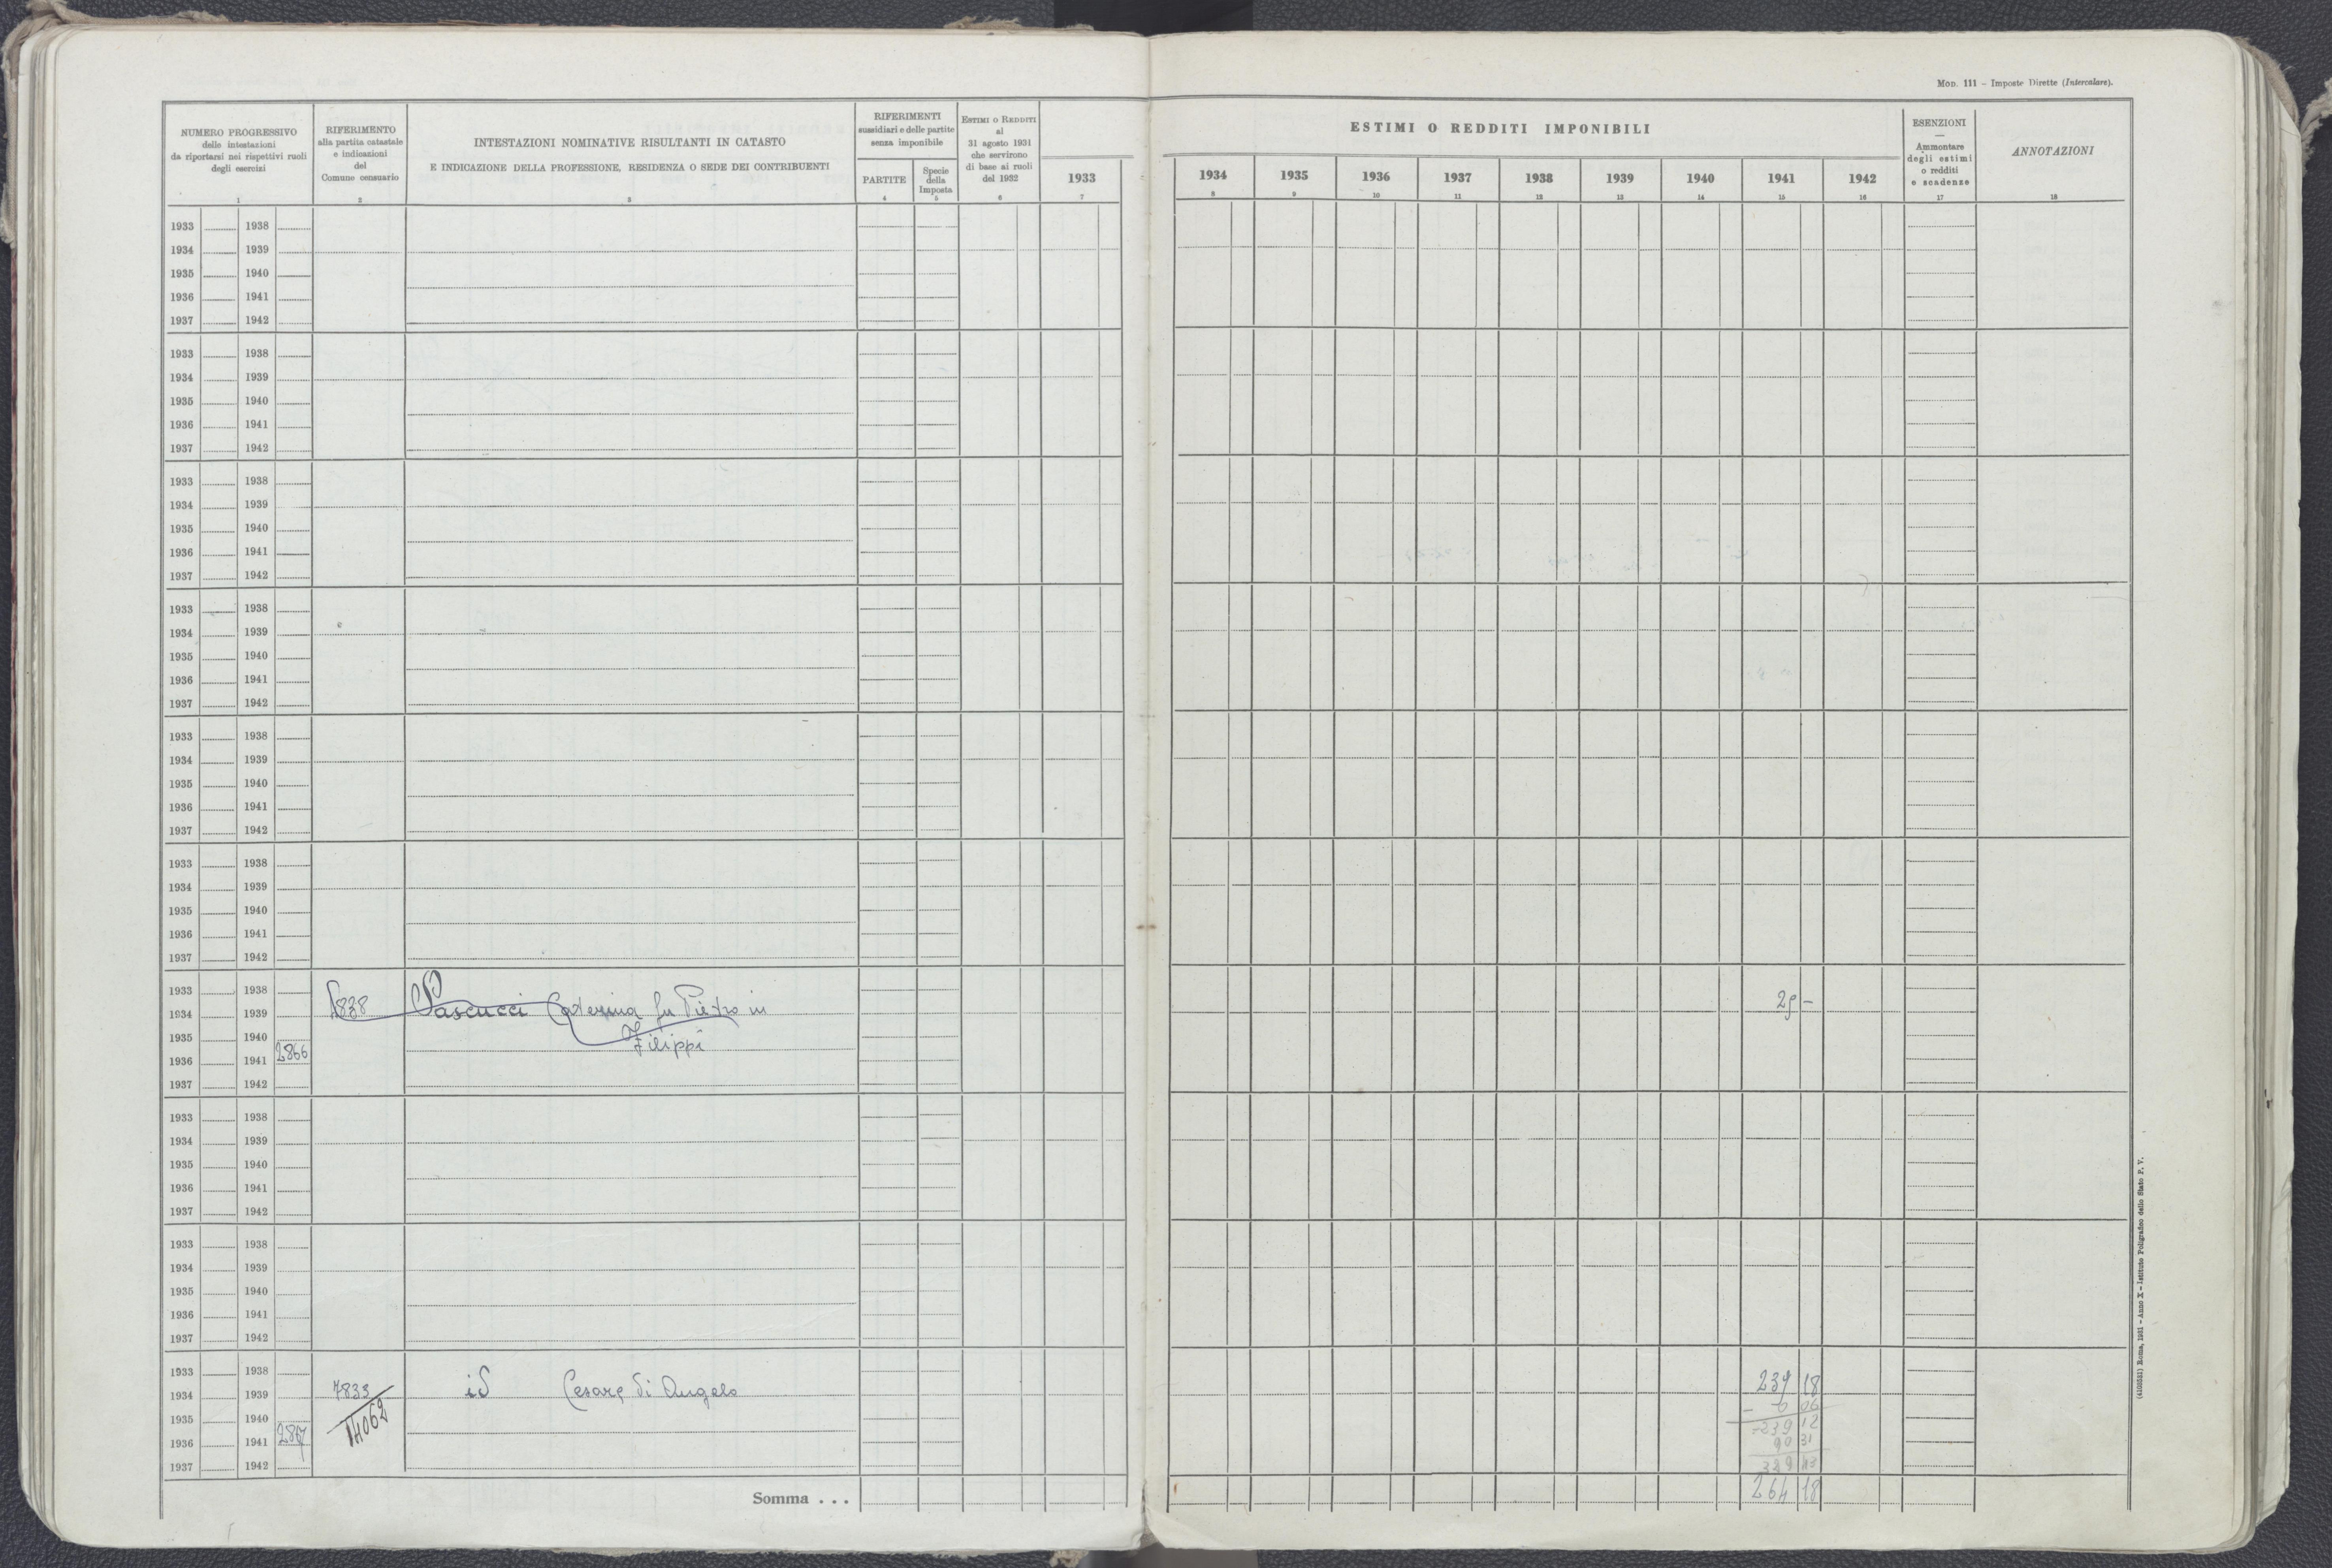 Mod. 111 – Imposte Dirette (Intercalare).
NUMERO PROGRESSIVO
delle intestazioni
da riportarsi nei rispettivi ruoli
degli esercizi
1
RIFERIMENTO
alla partita catastale
e indicazioni
del
Comune censuario
2
INTESTAZIONI NOMINATIVE RISULTANTI IN CATASTO
E INDICAZIONE DELLA PROFESSIONE, RESIDENZA O SEDE DEI CONTRIBUENTI
3
RIFERIMENTI
sussidiari e delle partite
senza imponibile
PARTITE
4
Specie
della
Imposta
5
ESTIMI O REDDITI
al
31 agosto 1931
che servirono
di base ai ruoli
del 1932
6
1933
7
ESTIMI O REDDITI IMPONIBILI
1934 1935 1936 1937 1938 1939 1940 1941 1942
8 9 10 11 12 13 14 15 16
ESENZIONI
—
Ammontare
degli estimi
o redditi
e scadenze
17
ANNOTAZIONI
18
1933 1938
1934 1939
1935 1940
1936 1941
1937 1942
1933 1938
1934 1939
1935 1940
1936 1941
1937 1942
1933 1938
1934 1939
1935 1940
1936 1941
1937 1942
1933 1938
1934 1939
1935 1940
1936 1941
1937 1942
1933 1938
1934 1939
1935 1940
1936 1941
1937 1942
1933 1938
1934 1939
1935 1940
1936 1941
1937 1942
1933 1938
1934 1939 Pascucci Caterina fu Pietro in
1935 1940 Filippi
1936 1941 2866
1937 1942
1933 1938
1934 1939
1935 1940
1936 1941
1937 1942
1933 1938
1934 1939
1935 1940
1936 1941
1937 1942
1933 1938
1934 1939 7833 id Cesare di Angelo 239 18
1935 1940 14062 – 0 06
239 12
1936 1941 2867 90 31
1937 1942 329 43
Somma . . . 264 18
(4103531) Roma, 1931 – Anno X – Istituto Poligrafico dello Stato P. V.